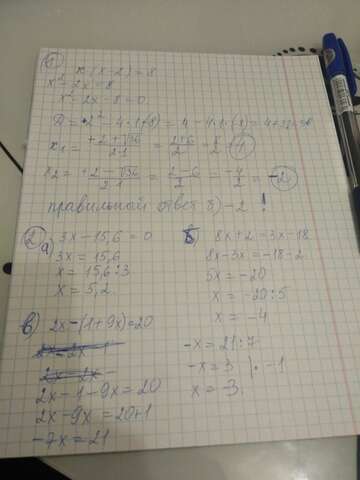 1
x(x-2)=8
x²-2x=8
x²-2x-8=0
D=2²-4·1·(8)=4-4·1·(8)=4+32=36
x₁=+2+√36/2·1=2+6/2=8/2=4
x₂=+2-√36/2·1=2-6/2=-4/2=-2
правильной ответ б)-2 !
2 а) 3x-15,6=0
3x=15,6
x=15,6:3
x=5,2
б 8x+2=3x-18
8x-3x=-18-2
5x=-20
x=-20:5
x=-4
в) 2x-(1+9x)=20
2x-1-9x=20
2x-9x=20+1
-7x=21
-x=21:7
-x=3 |·-1
x=-3